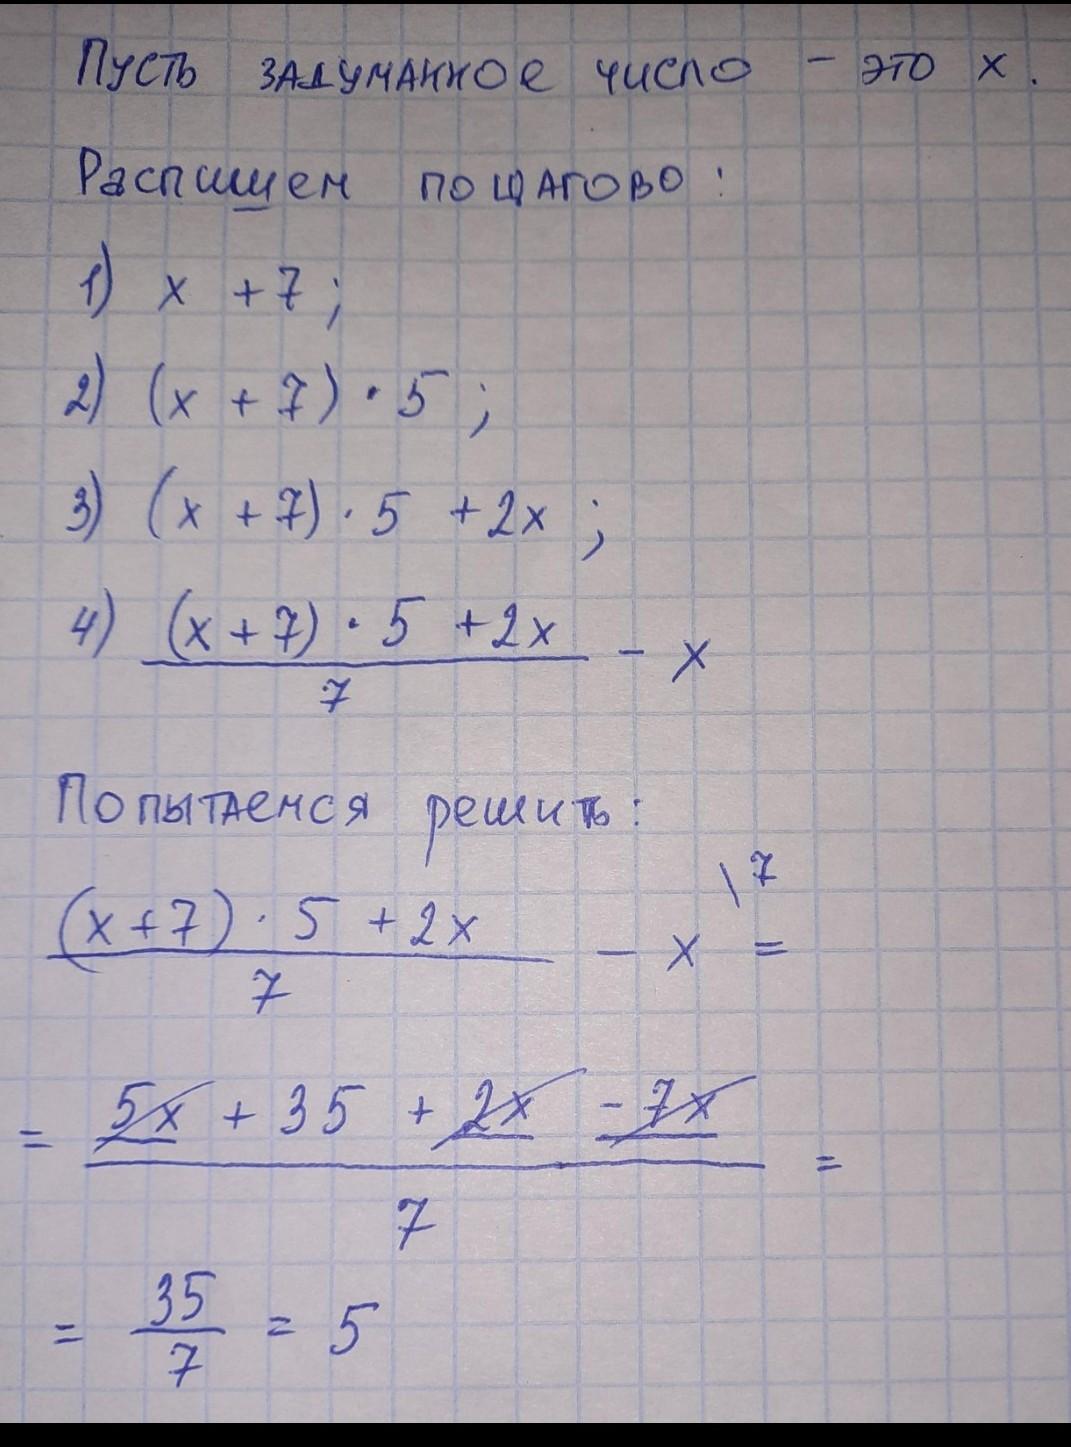 Пусть задуманное число - это x.
Распишем пошагово:
1) x + 7;
2) (x + 7) · 5;
3) (x + 7) · 5 + 2x;
4) (x + 7) · 5 + 2x
- x
7
Попытаемся решить:
\7
(x+7) · 5 + 2x
- x =
7
= 5x + 35 + 2x - 7x =
7
= 35/7 = 5